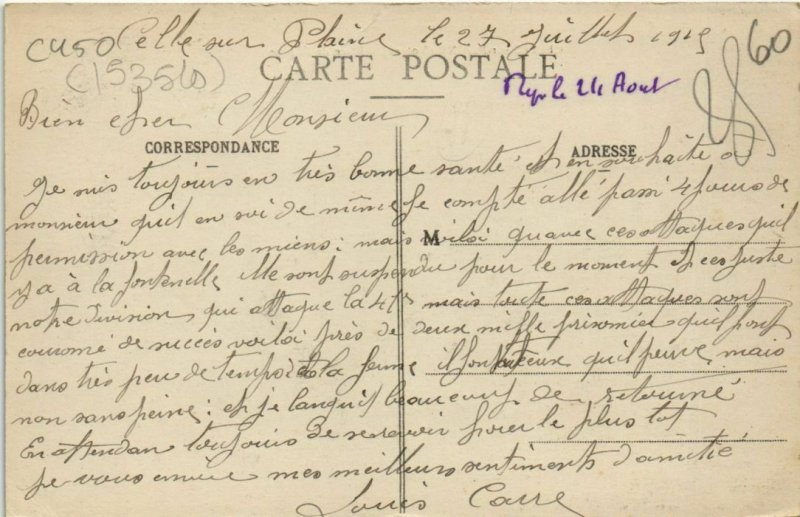 CU50 Celle sur Plaine le 27 Juillet 1915
(15356)
CARTE POSTALE
60
le 24 Aout
Bien cher Monsieur
CORRESPONDANCE
ADRESSE
Je suis toujours en très bonne santé et en souhaite a
monsieur quil en soi de même Je compté allé passé 4 Jours de
permission avec les miens: mais M voiloi quavec ces attaques quil
y a à la fontenelle elle sont suspendu pour le moment et ces Juste
notre division qui attaque la 41e mais toute ces attaques sont
couroné de succès voiloi près de deux mille prisonnier quil font
dans très peu de temps la il font ceux quil peuve mais
non sans peine: et je languil beaucoup de retourné
En attendan toujours de se revoir pour le plus tot
Je vous envoie mes meilleurs sentiments d'amitié
Louis Carre